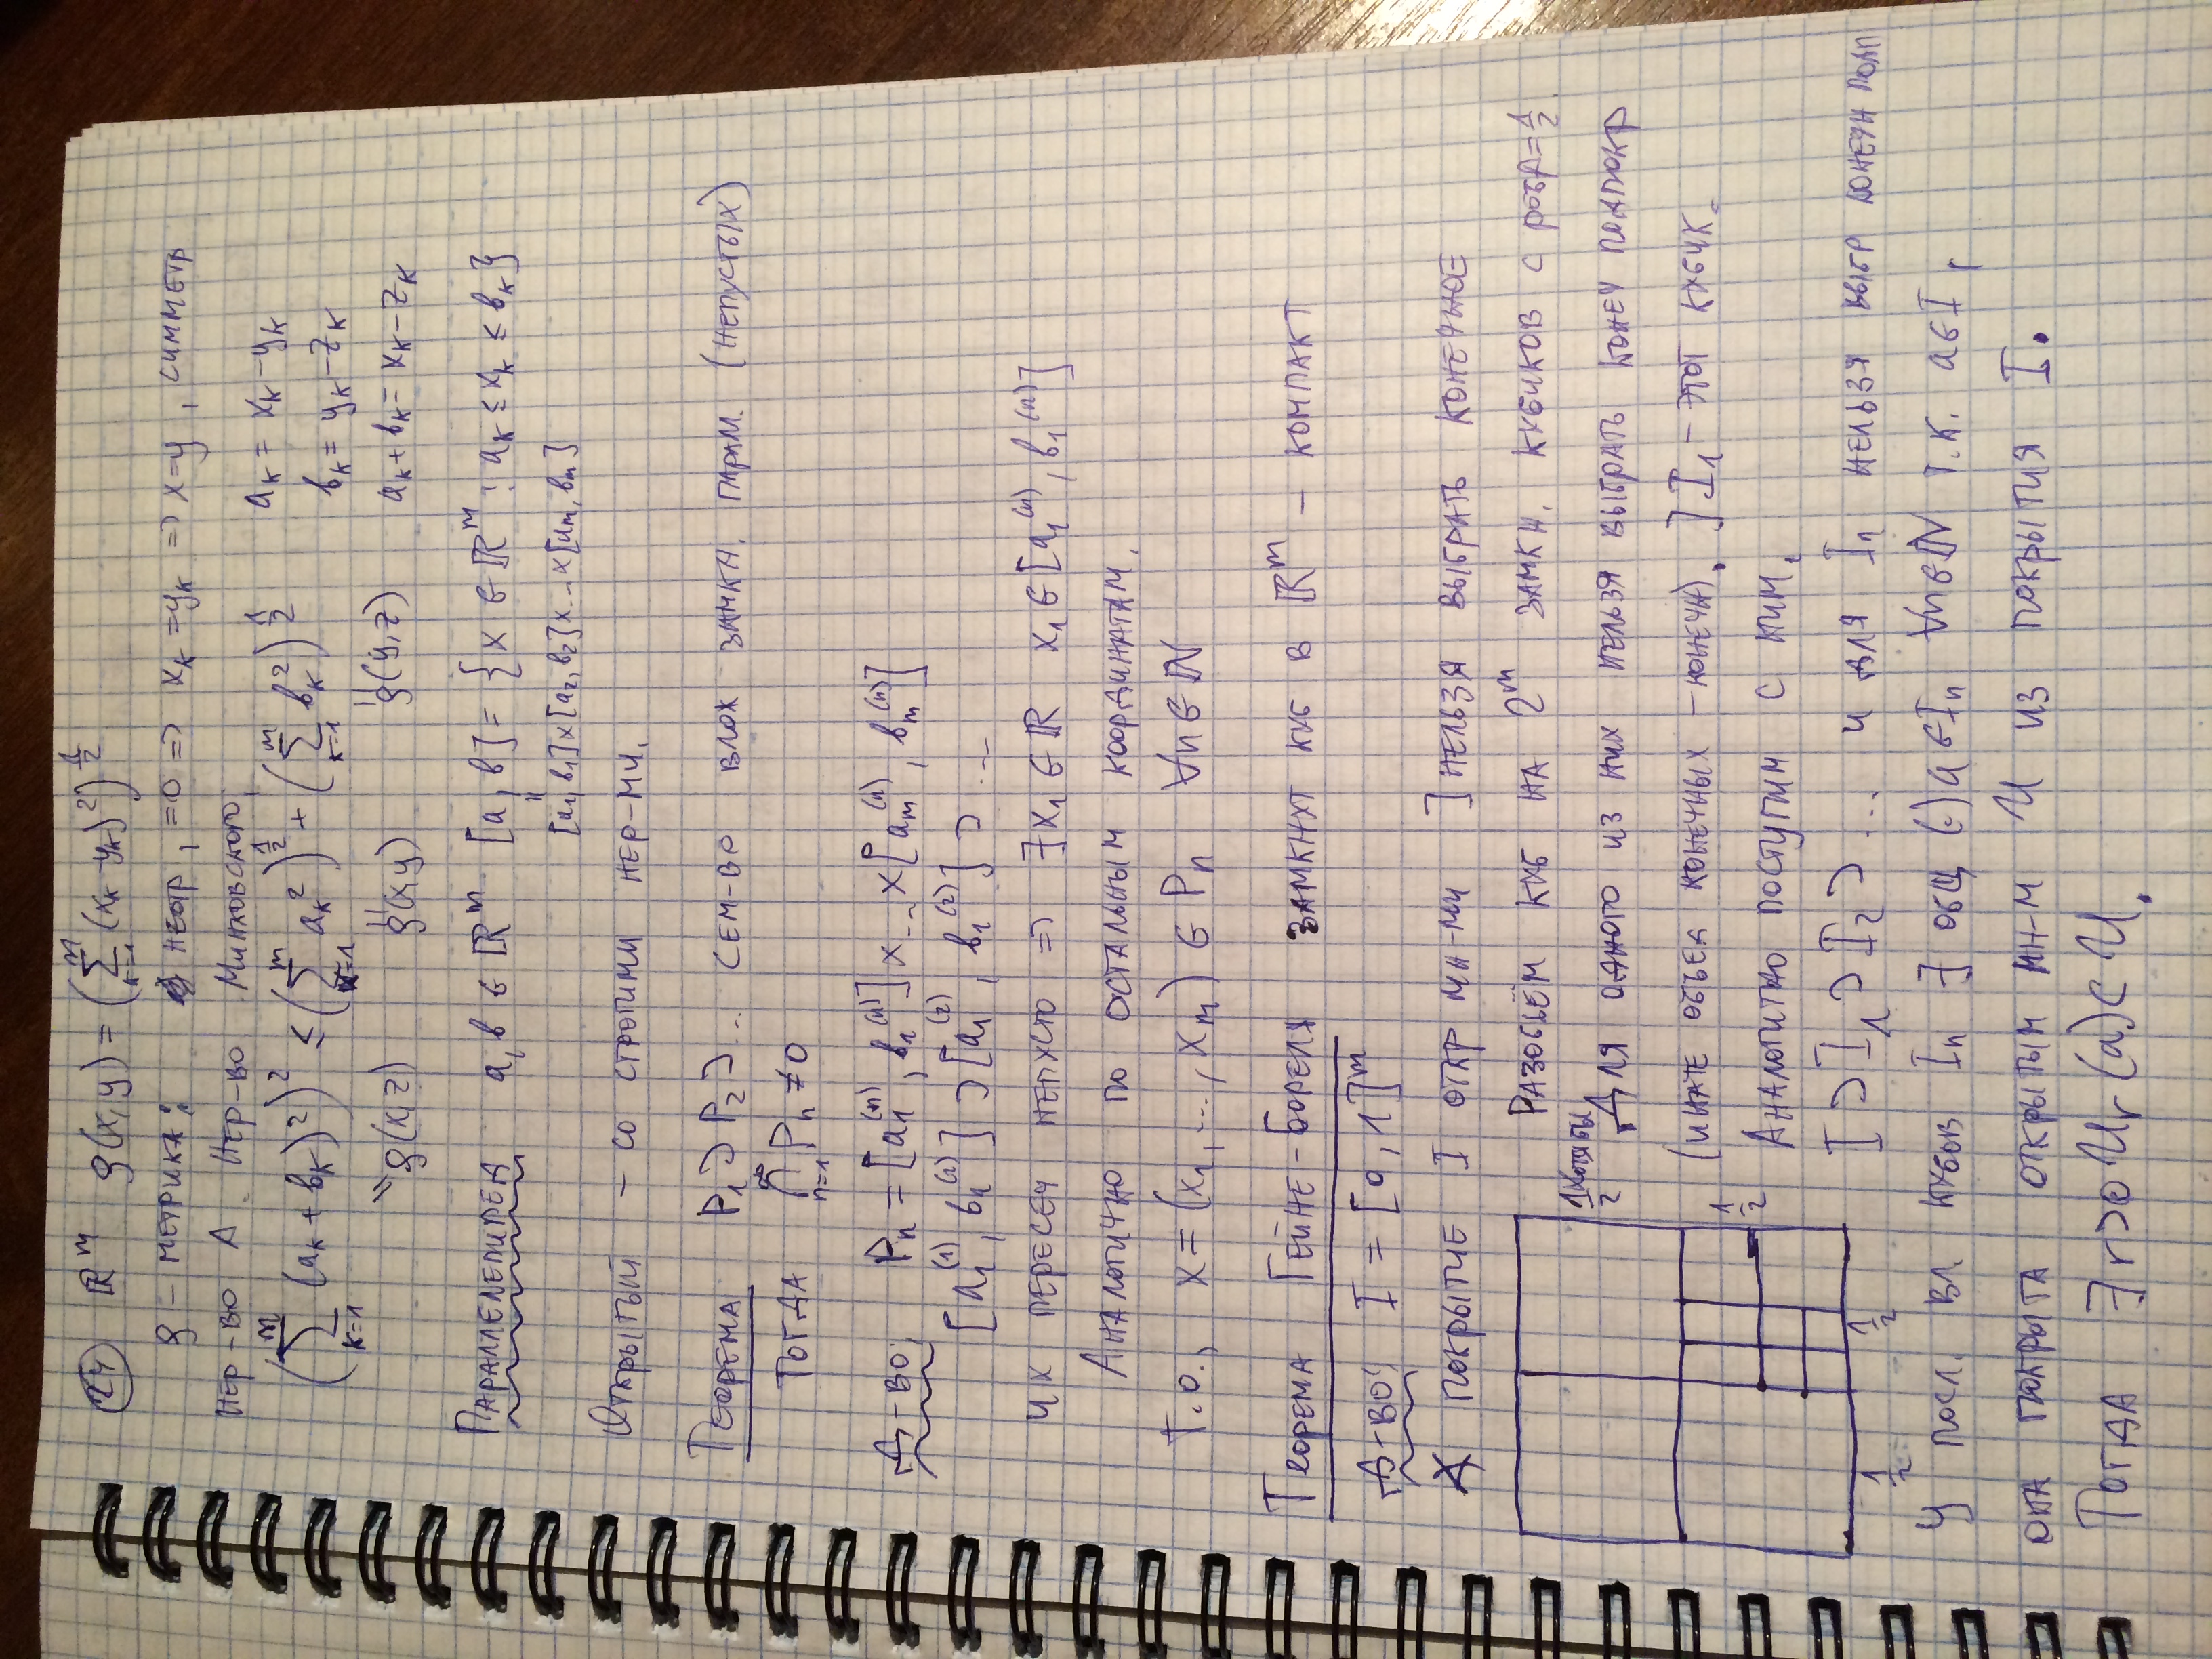 24 ℝ^m ρ(x,y) = (∑_{k=1}^{m} (x_k - y_k)^2)^{1/2}
ρ - метрика: неотр, =0 => x_k = y_k => x=y, симметр
нер-во Δ. Нер-во Минковского:
(∑_{k=1}^{m} (a_k + b_k)^2)^2 ≤ (∑_{k=1}^{m} a_k^2)^{1/2} + (∑_{k=1}^{m} b_k^2)^{1/2} a_k = x_k - y_k
b_k = y_k - z_k
"ρ(x,z) "ρ(x,y) "ρ(y,z) a_k + b_k = x_k - z_k
Параллелепипед a, b ∈ ℝ^m [a, b] = {x ∈ ℝ^m : a_k ≤ x_k ≤ b_k}
"[a_1, b_1]×[a_2, b_2]×...×[a_m, b_m]
Открытый - со строгими нер-ми.
Теорема P_1 ⊃ P_2 ⊃ ... сем-во влож замкн. парал. (непустых)
Тогда ⋂_{n=1}^{∞} P_n ≠ 0
Д-во: P_n = [a_1^{(n)}, b_1^{(n)}]×...×[a_m^{(n)}, b_m^{(n)}]
[a_1^{(1)}, b_1^{(1)}] ⊃ [a_1^{(2)}, b_1^{(2)}] ⊃ ...
их пересеч непусто => ∃x_1 ∈ ℝ x_1 ∈ [a_1^{(n)}, b_1^{(n)}]
Аналогично по остальным координатам.
Т.о., x = (x_1, ..., x_m) ∈ P_n ∀n ∈ ℕ
Теорема Гейне-Бореля замкнут куб в ℝ^m - компакт
Д-во: I = [0, 1]^m
покрытие I откр мн-ми ] нельзя выбрать конечное
Разобьём куб на 2^m замкн. кубиков с ребр=1/2.
1/2 хотя бы
Для одного из них нельзя выбрать конеч подпокр
(иначе объед конечных - конечн). ] I_1 - этот кубик.
1/2
Аналогично поступим с ним.
I ⊃ I_1 ⊃ I_2 ⊃ ... и для I_n нельзя выбр конечн подп
1/2 1/2
У посл. вл. кубов I_n ∃ общ (·) a ∈ I_n ∀n ∈ ℕ т.к. a ∈ I,
она покрыта открытым мн-м U из покрытия I.
Тогда ∃ r>0 U_r(a) ⊂ U.